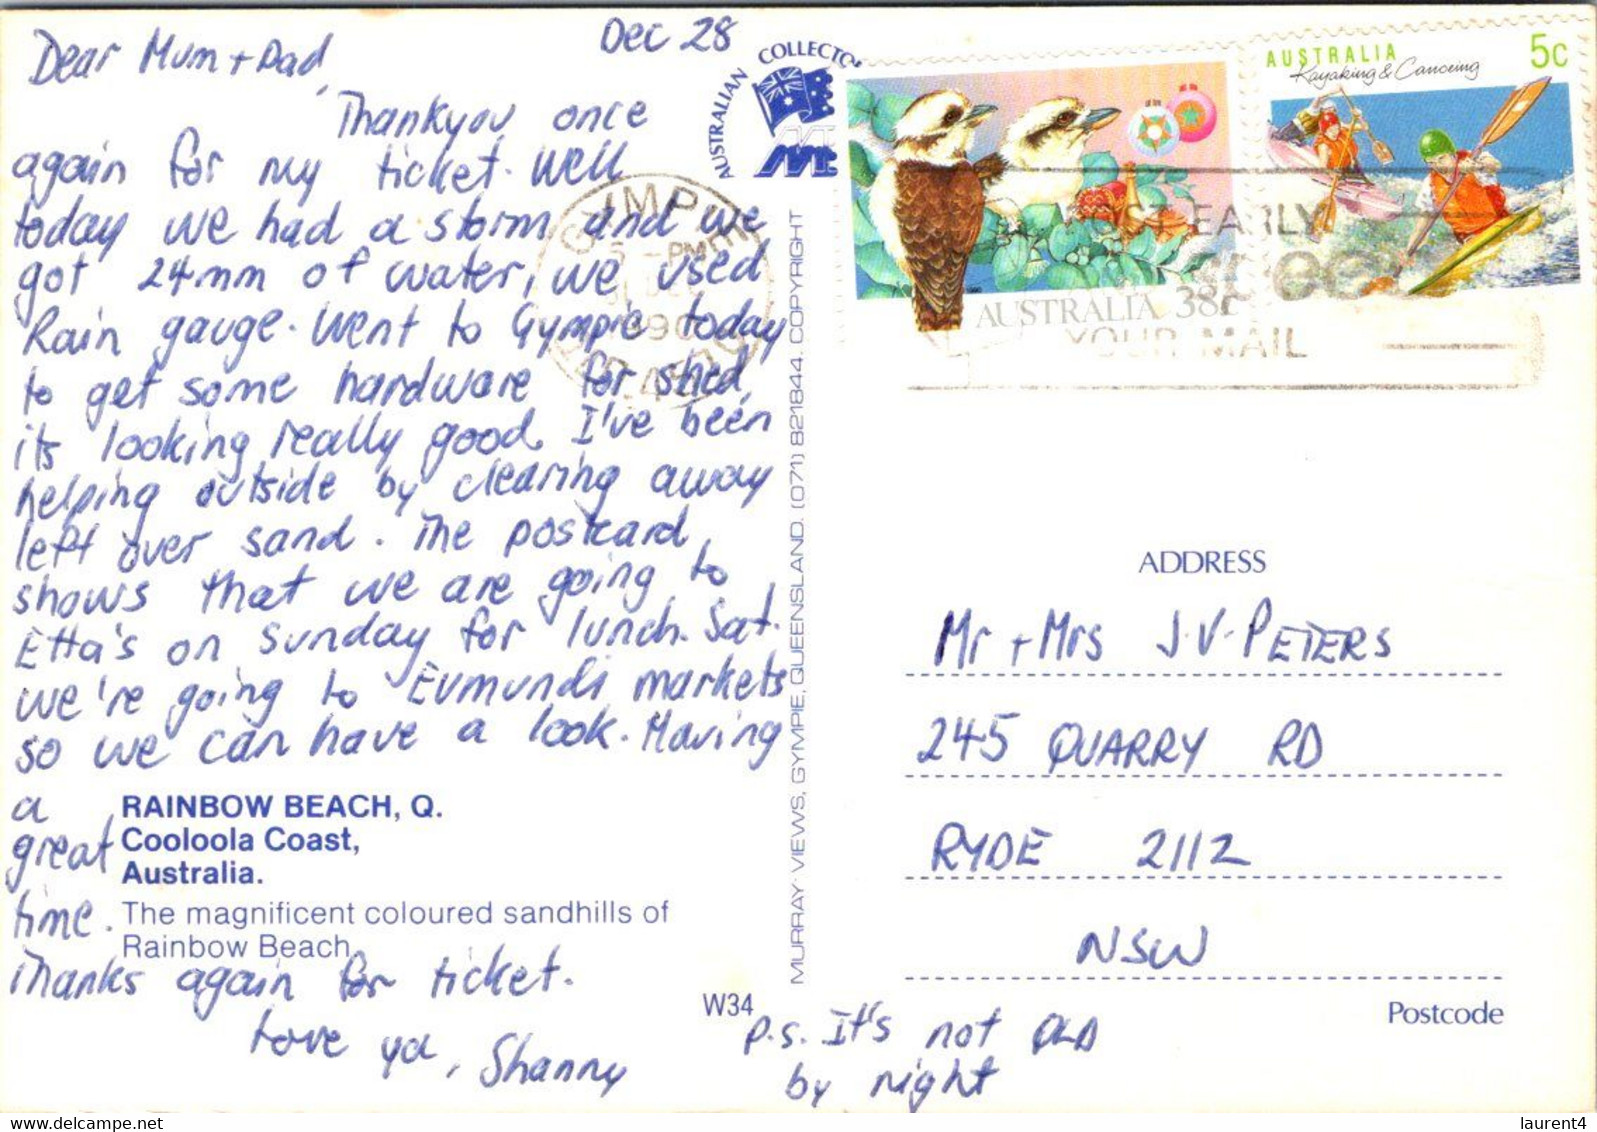 Dec 28
Dear Mum + Dad,
Thankyou once
again for my ticket. Well
today we had a storm and we
got 24mm of water, we used
Rain gauge. Went to Gympie today
to get some hardware for shed,
its looking really good. I've been
helping outside by clearing away
left over sand. The postcard
shows that we are going to
Etta's on Sunday for lunch. Sat.
we're going to Eumundi markets
so we can have a look. Having
a
great
time.
Thanks again for ticket.
Love ya, Shanny
P.S. It's not
by night
RAINBOW BEACH, Q.
Cooloola Coast,
Australia.
The magnificent coloured sandhills of
Rainbow Beach
W34
AUSTRALIAN COLLECTO
MURRAY VIEWS, GYMPIE, QUEENSLAND. (071) 821844. COPYRIGHT
AUSTRALIA 38c
AUSTRALIA 5c
Kayaking & Canoeing
GYMPIE
5 - PM
1990
EARLY
YOUR MAIL
ADDRESS
Mr + Mrs J.V. PETERS
245 QUARRY RD
RYDE 2112
NSW
Postcode
delcampe.net
laurent4